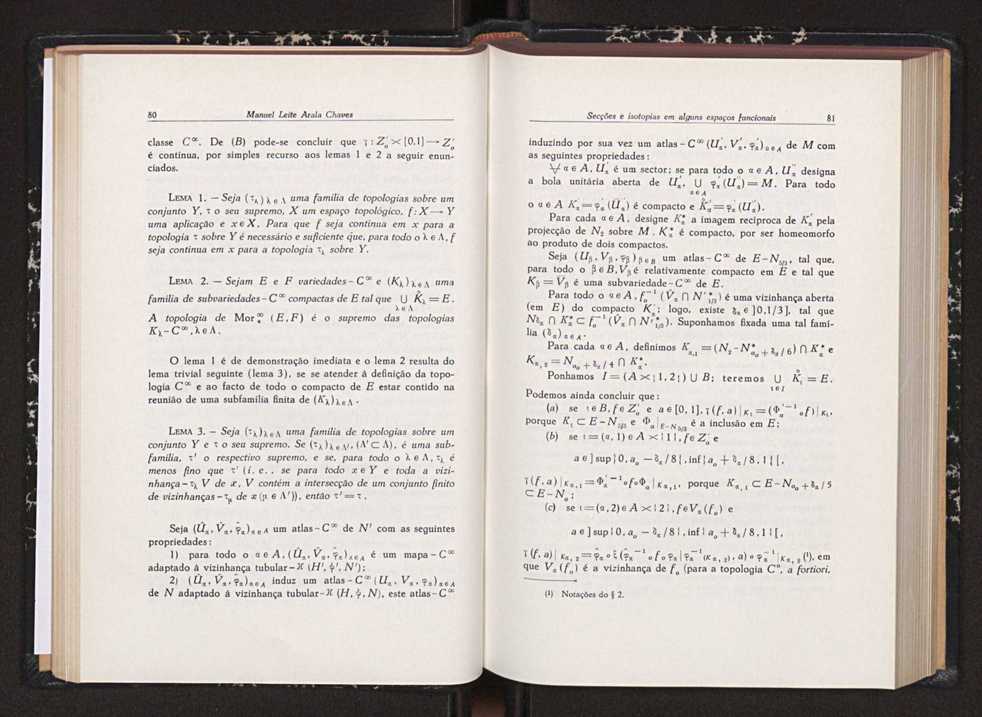 80 Manuel Leite Arala Chaves
classe C∞. De (B) pode-se concluir que ĩ : Z′ₒ × [0,1] → Z′ₒ
é contínua, por simples recurso aos lemas 1 e 2 a seguir enun-
ciados.
LEMA 1. — Seja (τλ) λ ∈ Λ uma família de topologias sobre um
conjunto Y, τ o seu supremo, X um espaço topológico, f : X → Y
uma aplicação e x ∈ X. Para que f seja contínua em x para a
topologia τ sobre Y é necessário e suficiente que, para todo o λ ∈ Λ, f
seja contínua em x para a topologia τλ sobre Y.
LEMA 2. — Sejam E e F variedades-C∞ e (Kλ) λ ∈ Λ uma
família de subvariedades-C∞ compactas de E tal que ∪ K̊λ = E.
λ ∈ Λ
A topologia de Mor∞ (E, F) é o supremo das topologias
Kλ-C∞, λ ∈ Λ.
O lema 1 é de demonstração imediata e o lema 2 resulta do
lema trivial seguinte (lema 3), se se atender à definição da topo-
logia C∞ e ao facto de todo o compacto de E estar contido na
reunião de uma subfamília finita de (Kλ) λ ∈ Λ.
LEMA 3. — Seja (τλ) λ ∈ Λ uma família de topologias sobre um
conjunto Y e τ o seu supremo. Se (τλ) λ ∈ Λ′, (Λ′ ⊂ Λ), é uma sub-
família, τ′ o respectivo supremo, e se, para todo o λ ∈ Λ, τλ é
menos fino que τ′ (i. e., se para todo x ∈ Y e toda a vizi-
nhança-τλ V de x, V contém a intersecção de um conjunto finito
de vizinhanças-τμ de x (μ ∈ Λ′)), então τ′ = τ.
Seja (Ûα, V̂α, φ̂α) α ∈ A um atlas-C∞ de N′ com as seguintes
propriedades:
1) para todo o α ∈ A, (Ûα, V̂α, φ̂α) α ∈ A é um mapa-C∞
adaptado à vizinhança tubular-ℋ (H′, ψ′, N′);
2) (Ûα, V̂α, φ̂α) α ∈ A induz um atlas-C∞ (Uα, Vα, φα) α ∈ A
de N adaptado à vizinhança tubular-ℋ (H, ψ, N), este atlas-C∞
Secções e isotopias em alguns espaços funcionais 81
induzindo por sua vez um atlas-C∞ (U′α, V′α, φ′α) α ∈ A de M com
as seguintes propriedades:
∀ α ∈ A, U′α é um sector; se para todo o α ∈ A, U″α designa
a bola unitária aberta de U′α, ∪ φ′α (U″α) = M. Para todo
α ∈ A
o α ∈ A K′α = φ′α (Ū″α) é compacto e K̊′α = φ′α (U″α).
Para cada α ∈ A, designe K*α a imagem recíproca de K′α pela
projecção de N₂ sobre M. K*α é compacto, por ser homeomorfo
ao produto de dois compactos.
Seja (Uβ, Vβ, φβ) β ∈ B um atlas-C∞ de E−N₅/₃, tal que,
para todo o β ∈ B, Vβ é relativamente compacto em E e tal que
Kβ = V̄β é uma subvariedade-C∞ de E.
Para todo o α ∈ A, fₒ⁻¹ (V̂α ∩ N′*₁/₃) é uma vizinhança aberta
(em E) do compacto K′α; logo, existe δα ∈ ]0,1/3], tal que
Nδα ∩ K*α ⊂ fₒ⁻¹ (V̂α ∩ N′*₁/₃). Suponhamos fixada uma tal famí-
lia (δα) α ∈ A.
Para cada α ∈ A, definimos Kα,₁ = (N₂−N*aₒ + δα/6) ∩ K*α e
Kα,₂ = Naₒ + δα/4 ∩ K*α.
Ponhamos I = (A × {1, 2}) ∪ B; teremos ∪ K̊ι = E.
ι ∈ I
Podemos ainda concluir que:
(a) se ι ∈ B, f ∈ Z′ₒ e a ∈ [0, 1], ĩ (f, a) | Kι = (Φ′a⁻¹ o f) | Kι,
porque Kι ⊂ E−N₅/₃ e Φa | E−N₅/₃ é a inclusão em E;
(b) se ι = (α, 1) ∈ A × {1}, f ∈ Z′ₒ e
a ∈ ] sup {0, aₒ − δα/8}, inf {aₒ + δα/8, 1} [,
ĩ (f, a) | Kα,₁ = Φ′a⁻¹ o f o Φa | Kα,₁, porque Kα,₁ ⊂ E−Naₒ + δα/5
⊂ E−Nₐ;
(c) se ι = (α, 2) ∈ A × {2}, f ∈ Vα (fₒ) e
a ∈ ] sup {0, aₒ − δα/8}, inf {aₒ + δα/8, 1} [,
ĩ (f, a) | Kα,₂ = φ̂α o ξ (φ̂α⁻¹ o f o φα | φα⁻¹ (Kα,₂), a) o φα⁻¹ | Kα,₂ (¹), em
que Vα (fₒ) é a vizinhança de fₒ (para a topologia C⁰, a fortiori,
(¹) Notações do § 2.